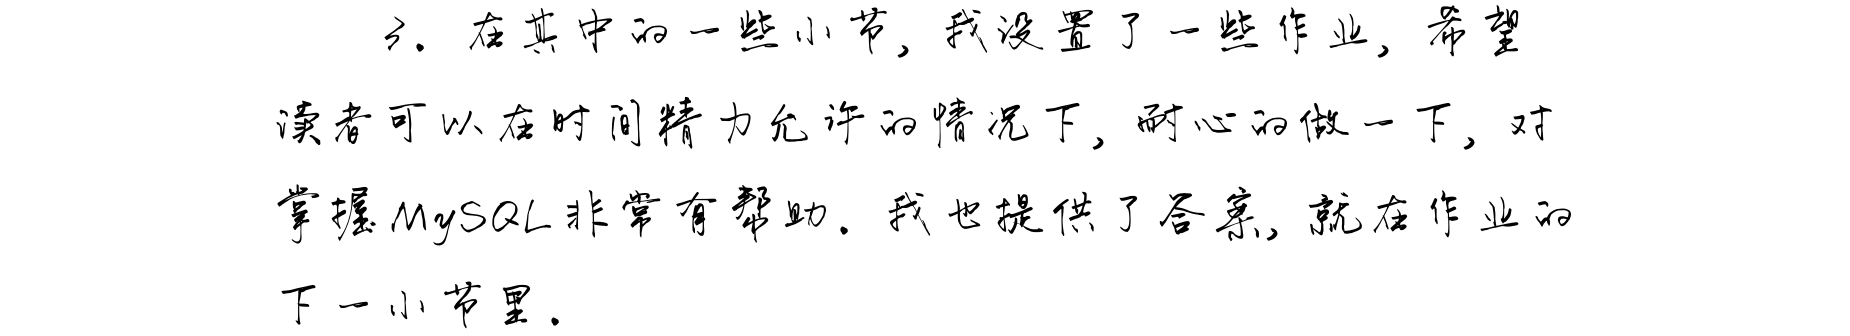 3. 在其中的一些小节, 我设置了一些作业, 希望
读者可以在时间精力允许的情况下, 耐心的做一下, 对
掌握MySQL非常有帮助. 我也提供了答案, 就在作业的
下一小节里.